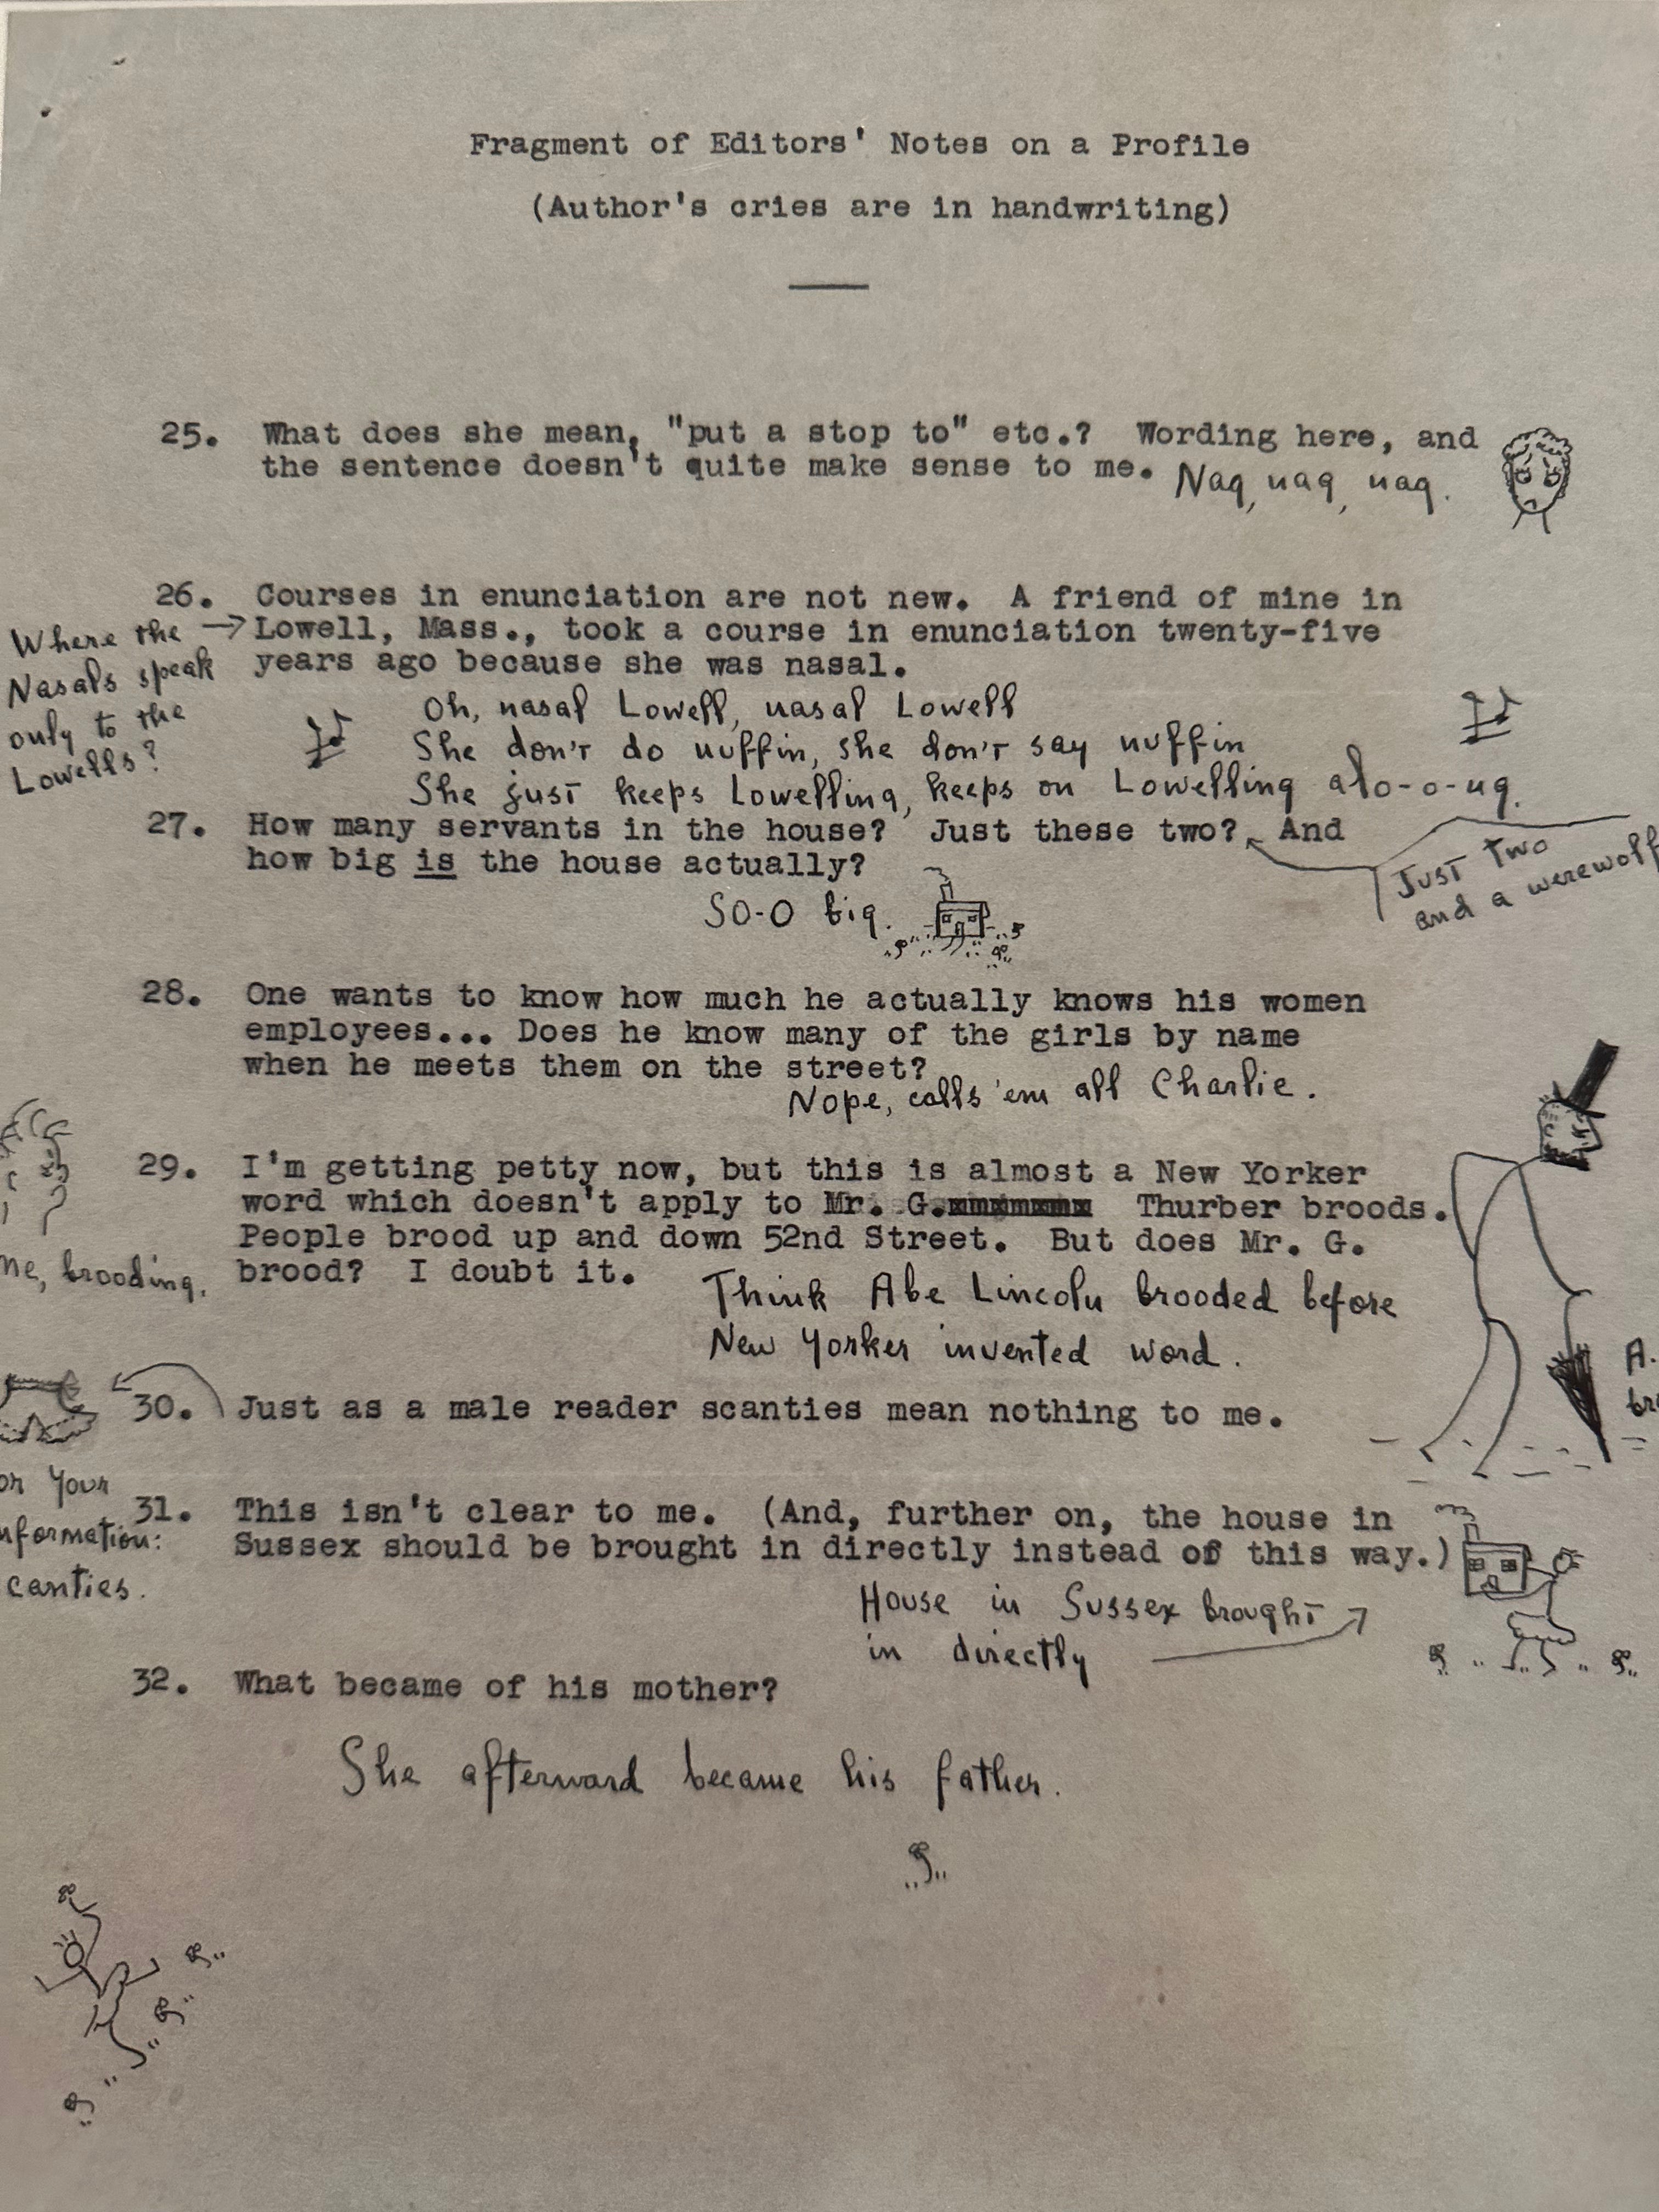 Fragment of Editors' Notes on a Profile
(Author's cries are in handwriting)
25. What does she mean, "put a stop to" etc.? Wording here, and
the sentence doesn't quite make sense to me.
Nag, nag, nag.
26. Courses in enunciation are not new. A friend of mine in
Lowell, Mass., took a course in enunciation twenty-five
years ago because she was nasal.
Where the
Nasals speak
only to the
Lowells?
Oh, nasal Lowell, nasal Lowell
She don't do nuffin, she don't say nuffin
She just keeps Lowelling, keeps on Lowelling alo-o-ng.
27. How many servants in the house? Just these two? And
how big is the house actually?
Just two
and a werewolf
SO-O big.
28. One wants to know how much he actually knows his women
employees... Does he know many of the girls by name
when he meets them on the street?
Nope, calls 'em all Charlie.
29. I'm getting petty now, but this is almost a New Yorker
word which doesn't apply to Mr. G. Thurber broods.
People brood up and down 52nd Street. But does Mr. G.
brood? I doubt it.
me, brooding.
Think Abe Lincoln brooded before
New Yorker invented word.
A.
30. Just as a male reader scanties mean nothing to me.
or your
nformation:
canties.
31. This isn't clear to me. (And, further on, the house in
Sussex should be brought in directly instead of this way.)
House in Sussex brought
in directly
32. What became of his mother?
She afterward became his father.